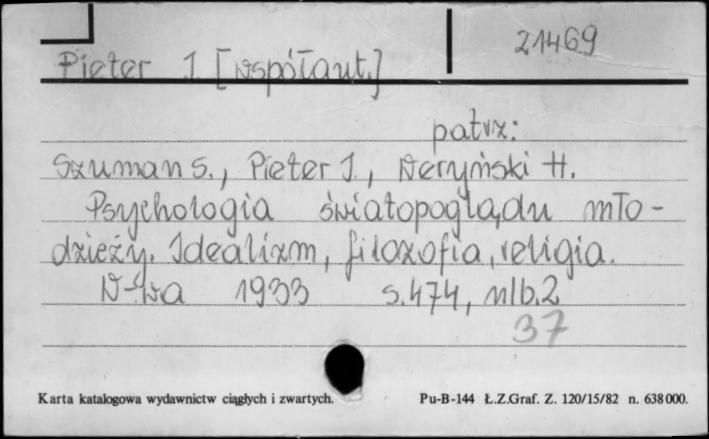 21469
Pieter J. [współaut.]
patrz:
Szuman S., Pieter J., Weryński H.
Psychologia światopoglądu mło-
dzieży. Idealizm, filozofia, religia.
W-wa 1933 s. 474, nlb. 2
37
Karta katalogowa wydawnictw ciągłych i zwartych. Pu-B-144 Ł.Z.Graf. Z. 120/15/82 n. 638000.